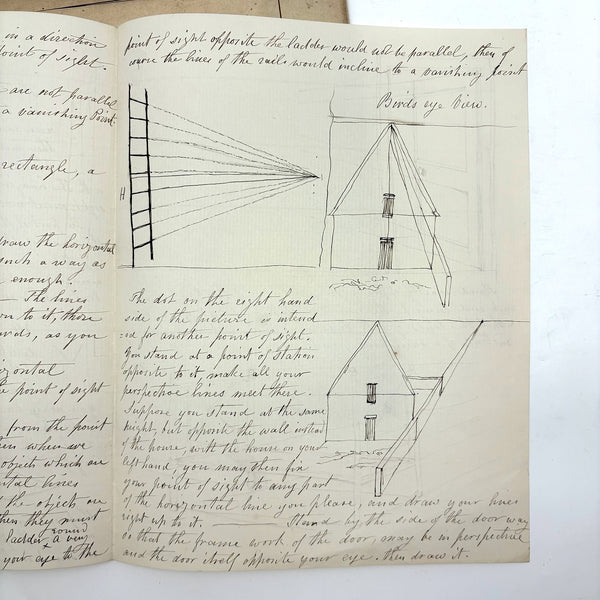 in a direction
point of sight.
are not parallel
a vanishing Point.
rectangle, a
draw the horizontal
such a way as
enough.
— The lines
to it, those
as you
horizontal
the point of sight
from the point
when we
objects which are
lines
the objects are
then they must
ladder a very
your eye to the
point of sight opposite the ladder would not be parallel, then of
course the lines of the rails would incline to a vanishing point
Birds eye View.
H
The dot on the right hand
side of the picture is intend
=ed for another point of sight.
You stand at a point of Station
opposite to it, make all your
perspective lines meet there.
Suppose you stand at the same
height, but opposite the wall instead
of the house, with the house on your
left hand, you may then fix
your point of sight to any part
of the horizontal line you please, and draw your lines
right up to it. ——— Stand by the side of the door way
so that the frame work of the door, may be in perspective
and the door itself opposite your eye. then draw it.